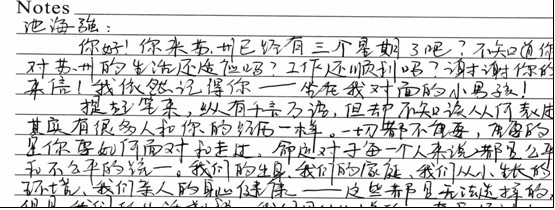 Notes
池海强:
你好!你来苏州已经有三个星期了吧?不知道你
对苏州的生活还适应吗?工作还顺利吗?谢谢你的
来信!我依然记得你——坐在我对面的小男孩!
提起笔来,纵有千言万语,但却不知该从何表达
其实有很多人和你的经历一样。一切都不重要,重要的
是你要如何面对和走过,命运对于每一个人来说都是公平
和不公平的统一。我们的出身、我们的家庭、我们从小生长的
环境、我们亲人的身心健康——这些都是无法选择的,
但是我们